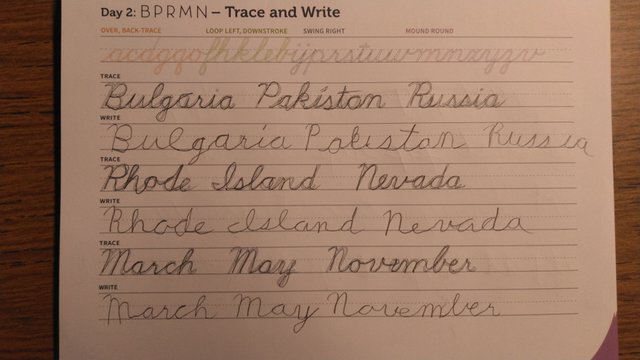 Day 2: B P R M N – Trace and Write
OVER, BACK-TRACE LOOP LEFT, DOWNSTROKE SWING RIGHT MOUND ROUND
TRACE
Bulgaria Pakistan Russia
WRITE
Bulgaria Pakistan Russia
TRACE
Rhode Island Nevada
WRITE
Rhode Island Nevada
TRACE
March May November
WRITE
March May November